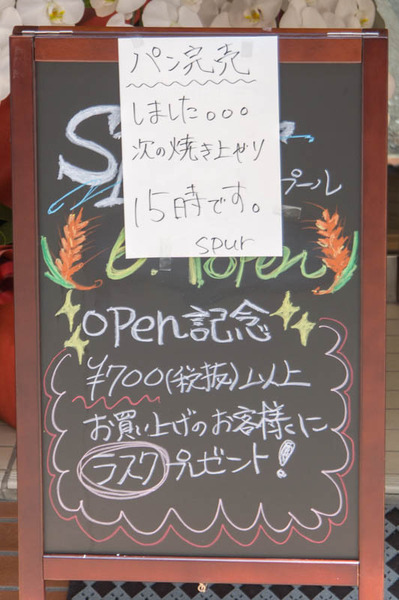 パン完売
しました。。。
次の焼き上がり
15時です。
spur
プール
open
open記念
¥700(税抜)以上
お買い上げのお客様に
ラスクプレゼント!